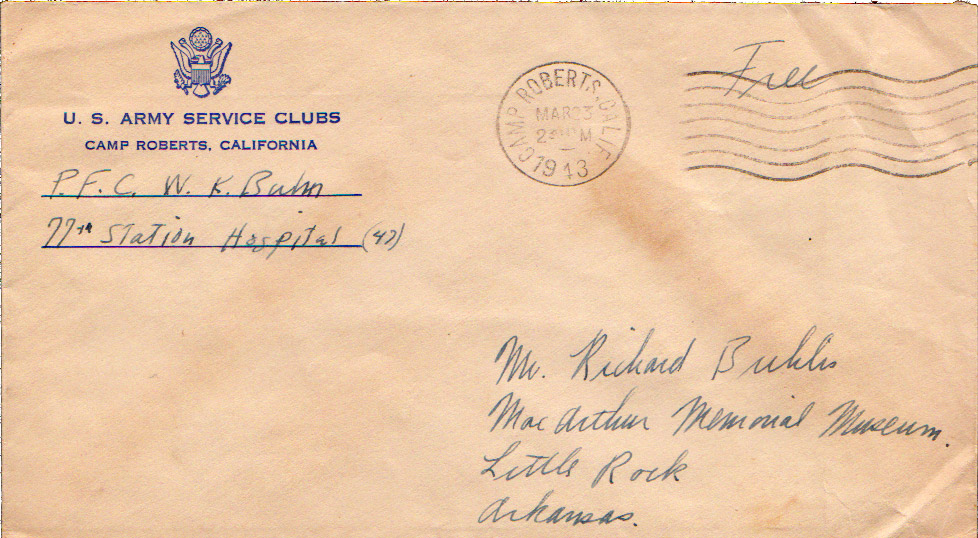 U. S. ARMY SERVICE CLUBS
CAMP ROBERTS, CALIFORNIA
P.F.C. W. K.
77th Station Hospital (47)
CAMP ROBERTS, CALIF.
MAR 23
1943
Free
Mr. Richard
MacArthur Memorial Museum.
Little Rock
Arkansas.